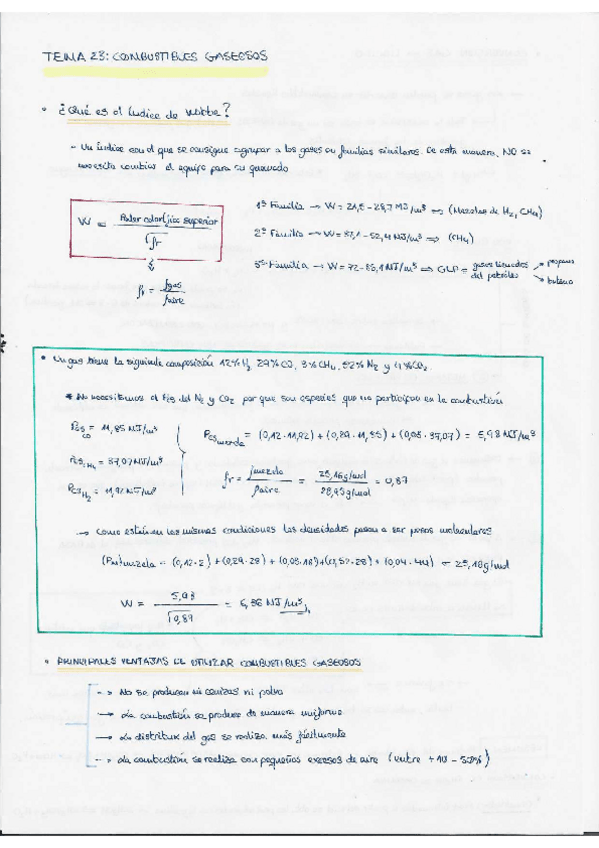 TEMA 23: COMBUSTIBLES GASEOSOS
• ¿Qué es el índice de Wobbe?
- Un índice con el que se consigue agrupar a los gases en familias similares. De esta manera, NO se
necesita cambiar el equipo para su quemado
W = Poder calorífico superior / √ρr
ρr = ρgas / ρaire
1ª Familia → W = 21,5 - 28,7 MJ/m³ ⇒ (Mezclas de H₂, CH₄)
2ª Familia → W = 37,1 - 52,4 MJ/m³ ⇒ (CH₄)
3ª Familia → W = 72 - 85,1 MJ/m³ ⇒ GLP = gases licuados del petróleo → propano → butano
• Un gas tiene la siguiente composición 12% H₂ 29% CO, 3% CH₄, 52% N₂ y 4% CO₂
* No necesitamos el PCS del N₂ y CO₂ porque son especies que no participan en la combustión
PCS CO = 11,85 MJ/m³
PCS CH₄ = 37,07 MJ/m³
PCS H₂ = 11,92 MJ/m³
PCS mezcla = (0,12·11,92) + (0,29·11,85) + (0,03·37,07) = 5,98 MJ/m³
ρr = ρmezcla / ρaire = 25,18 g/mol / 28,95 g/mol = 0,87
→ Como están en las mismas condiciones las densidades pasan a ser pesos moleculares
(Pm)mezcla = (0,12·2) + (0,29·28) + (0,03·16) + (0,52·28) + (0,04·44) = 25,18 g/mol
W = 5,98 / √0,87 = 6,36 MJ/m³
• PRINCIPALES VENTAJAS DE UTILIZAR COMBUSTIBLES GASEOSOS
--> No se producen ni cenizas ni polvo
--> La combustión se produce de manera uniforme
--> La distribux del gas se realiza más fácilmente
--> La combustión se realiza con pequeños excesos de aire (entre